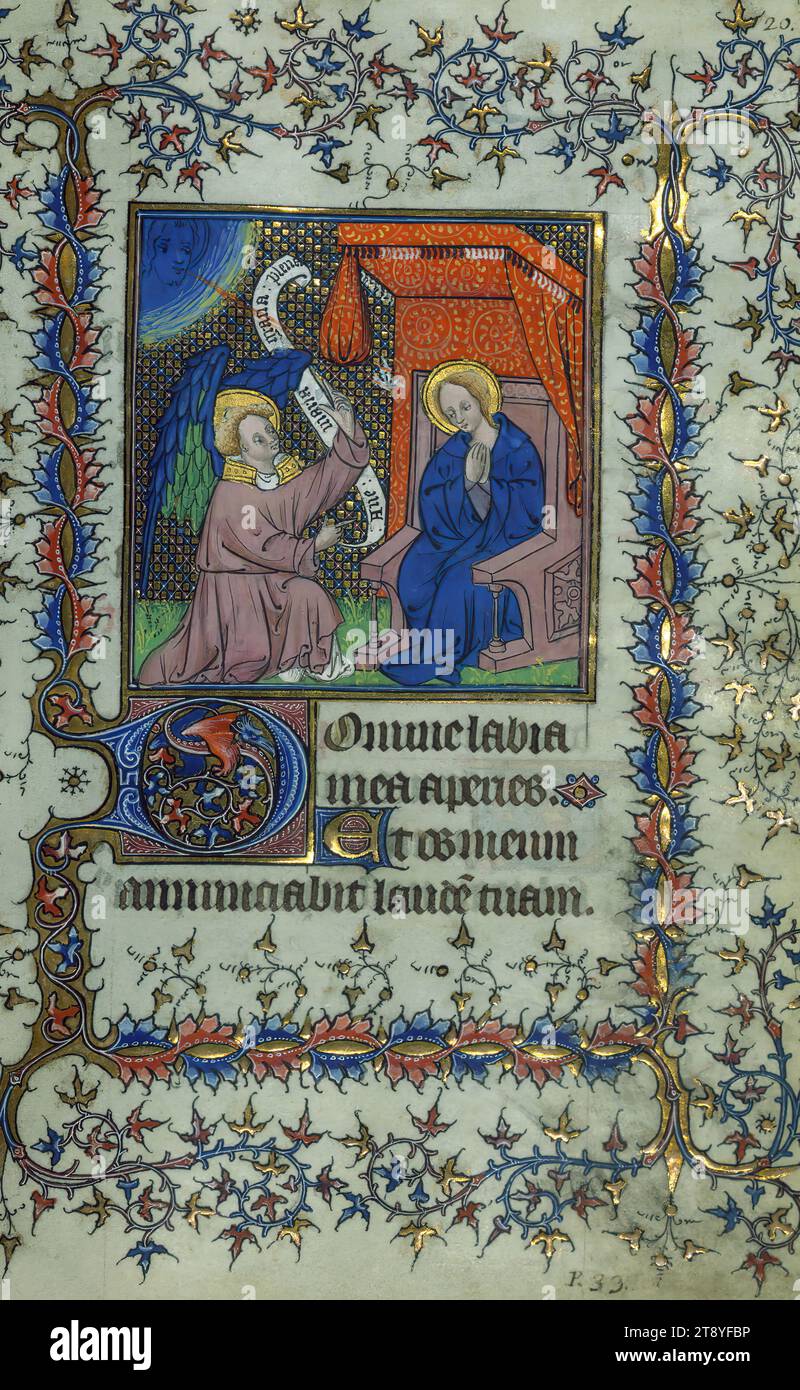 20.
Aue . maria . grana . plena
Domine labia
mea aperies.
Et os meum
annunciabit laudē tuam.
P. 33.
alamy
Image ID: 2T8YFBP
www.alamy.com